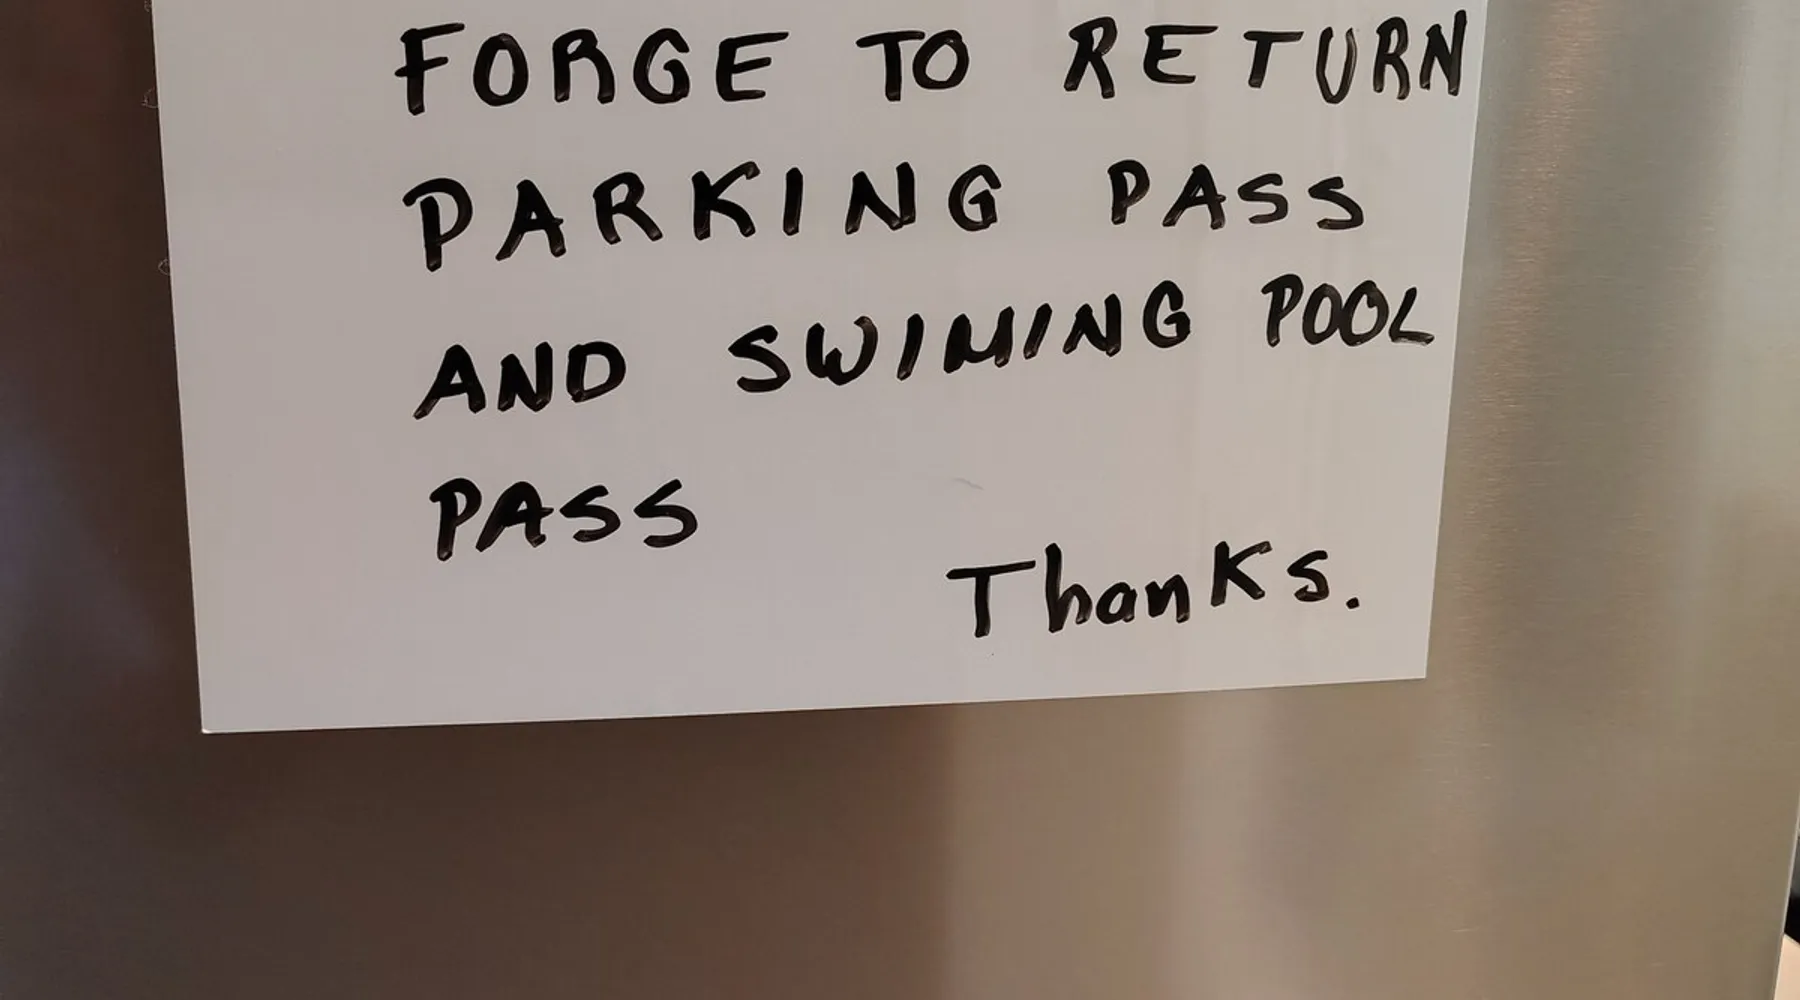 FORGE TO RETURN
PARKING PASS
AND SWIMING POOL
PASS
Thanks.